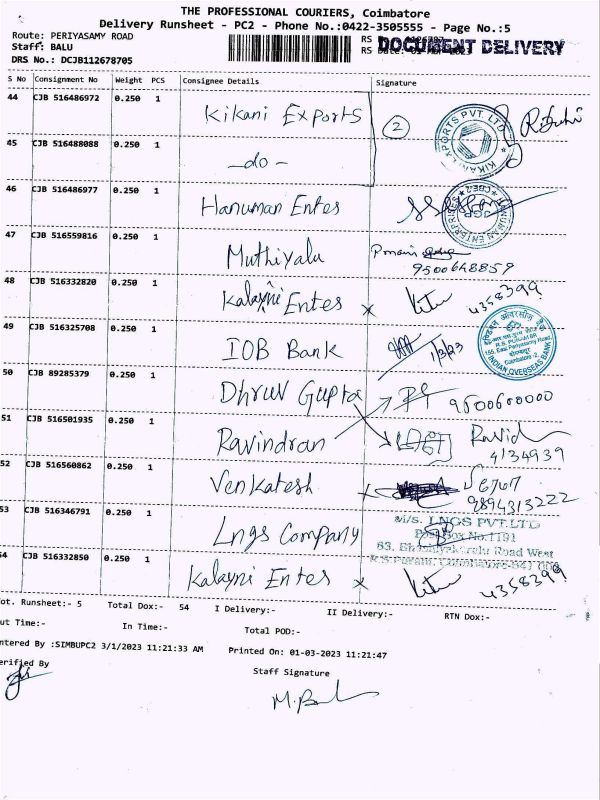 THE PROFESSIONAL COURIERS, Coimbatore
Delivery Runsheet - PC2 - Phone No.:0422-3505555 - Page No.:5
Route: PERIYASAMY ROAD
Staff: BALU
DRS No.: DCJB112678705
RS
RS Date:
DOCUMENT DELIVERY
S No Consignment No Weight PCS Consignee Details Signature
44 CJB 516486972 0.250 1 Kikani Exports 2
45 CJB 516488088 0.250 1 -do-
46 CJB 516486977 0.250 1 Hanuman Entes
47 CJB 516559816 0.250 1 Muthiyalu
9500648859
48 CJB 516332820 0.250 1 Kalayni Entes x 4358399
49 CJB 516325708 0.250 1 IOB Bank 1/3/23
INDIAN OVERSEAS BANK
50 CJB 89285379 0.250 1 Dhruv Gupta 9500600000
51 CJB 516501935 0.250 1 Ravindran Ravid
4134939
52 CJB 516560862 0.250 1 Venkatesh
9894313222
53 CJB 516346791 0.250 1 Lngs Company
M/s. LNGS PVT.LTD
Post Box No.1191
Road West
54 CJB 516332850 0.250 1 Kalayni Entes x 4358399
ot. Runsheet:- 5 Total Dox:- 54 I Delivery:- II Delivery:- RTN Dox:-
ut Time:- In Time:- Total POD:-
ntered By :SIMBUPC2 3/1/2023 11:21:33 AM Printed On: 01-03-2023 11:21:47
erified By Staff Signature